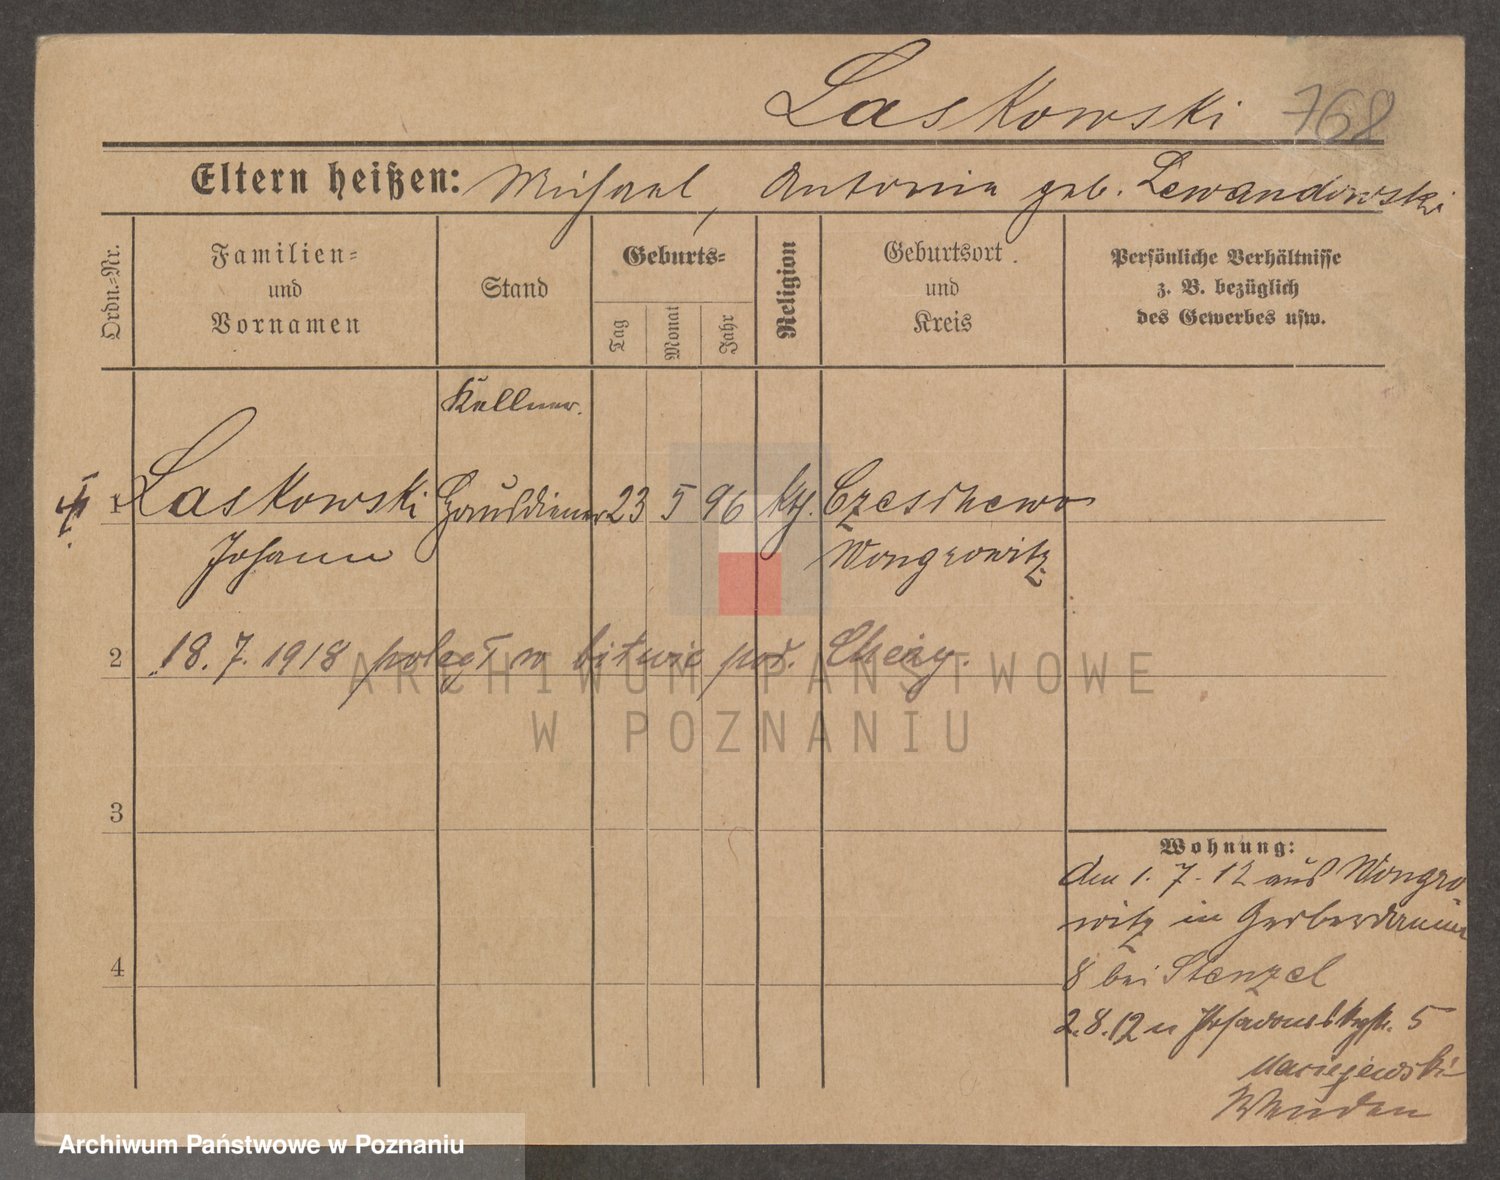 Laskowski 768
Eltern heißen: Michael, Antonie geb. Lewandowski
Ordn.=Nr.
Familien=
und
Vornamen
Stand
Geburts=
Tag
Monat
Jahr
Religion
Geburtsort
und
Kreis
Persönliche Verhältnisse
z. B. bezüglich
des Gewerbes usw.
Kellner.
1 Laskowski Hausdiener 23 5 96 kth. Czeschewo
Johann Wongrowitz
2 18. 7. 1918 poległ w bitwie pod.
3
4
Wohnung:
den 1. 7. 12 aus Wongro
witz in Gerberdamm
8 bei Stenzel
2.8.12 n 5
Maciejewski
ARCHIWUM PAŃSTWOWE
W POZNANIU
Archiwum Państwowe w Poznaniu